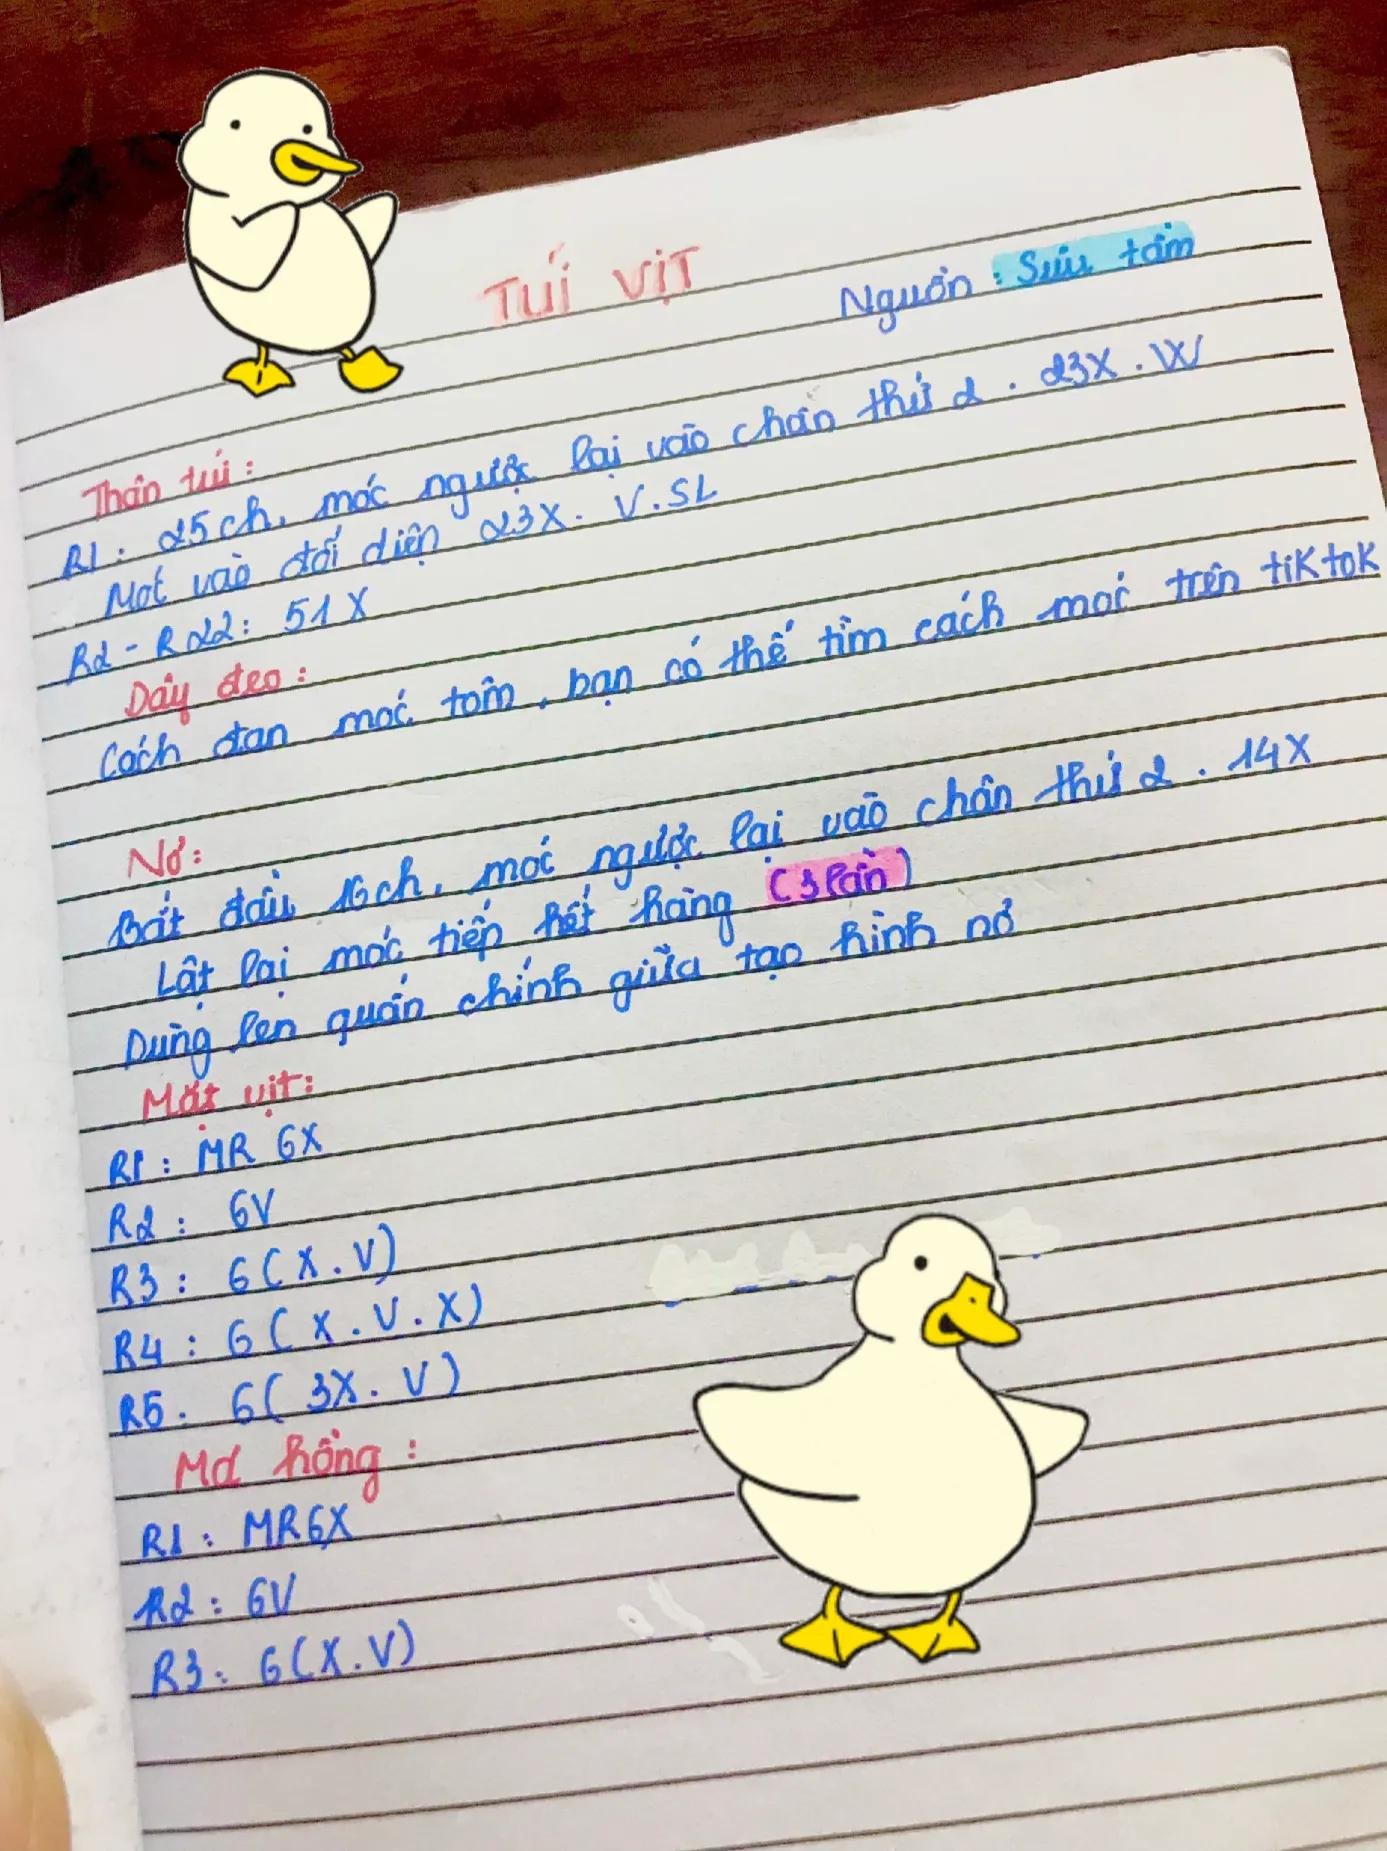 TÚI VỊT
Nguồn : Sưu tầm
Thân túi :
R1 : 25ch, móc ngược lại vào chân thứ 2 . 23X . W
Mot vào đối diện 23X . V . SL
R2 - R22 : 51X
Dây đeo :
Cách đan móc tôm, bạn có thể tìm cách móc trên tiktok
Nơ :
Bắt đầu 16ch, móc ngược lại vào chân thứ 2 . 14X
Lật lại móc tiếp hết hàng (3 lần)
Dùng len quấn chính giữa tạo hình nơ
Mắt vịt :
R1 : MR 6X
R2 : 6V
R3 : 6(X.V)
R4 : 6(X.V.X)
R5 . 6(3X.V)
Má hồng :
R1 : MR6X
R2 : 6V
R3 : 6(X.V)